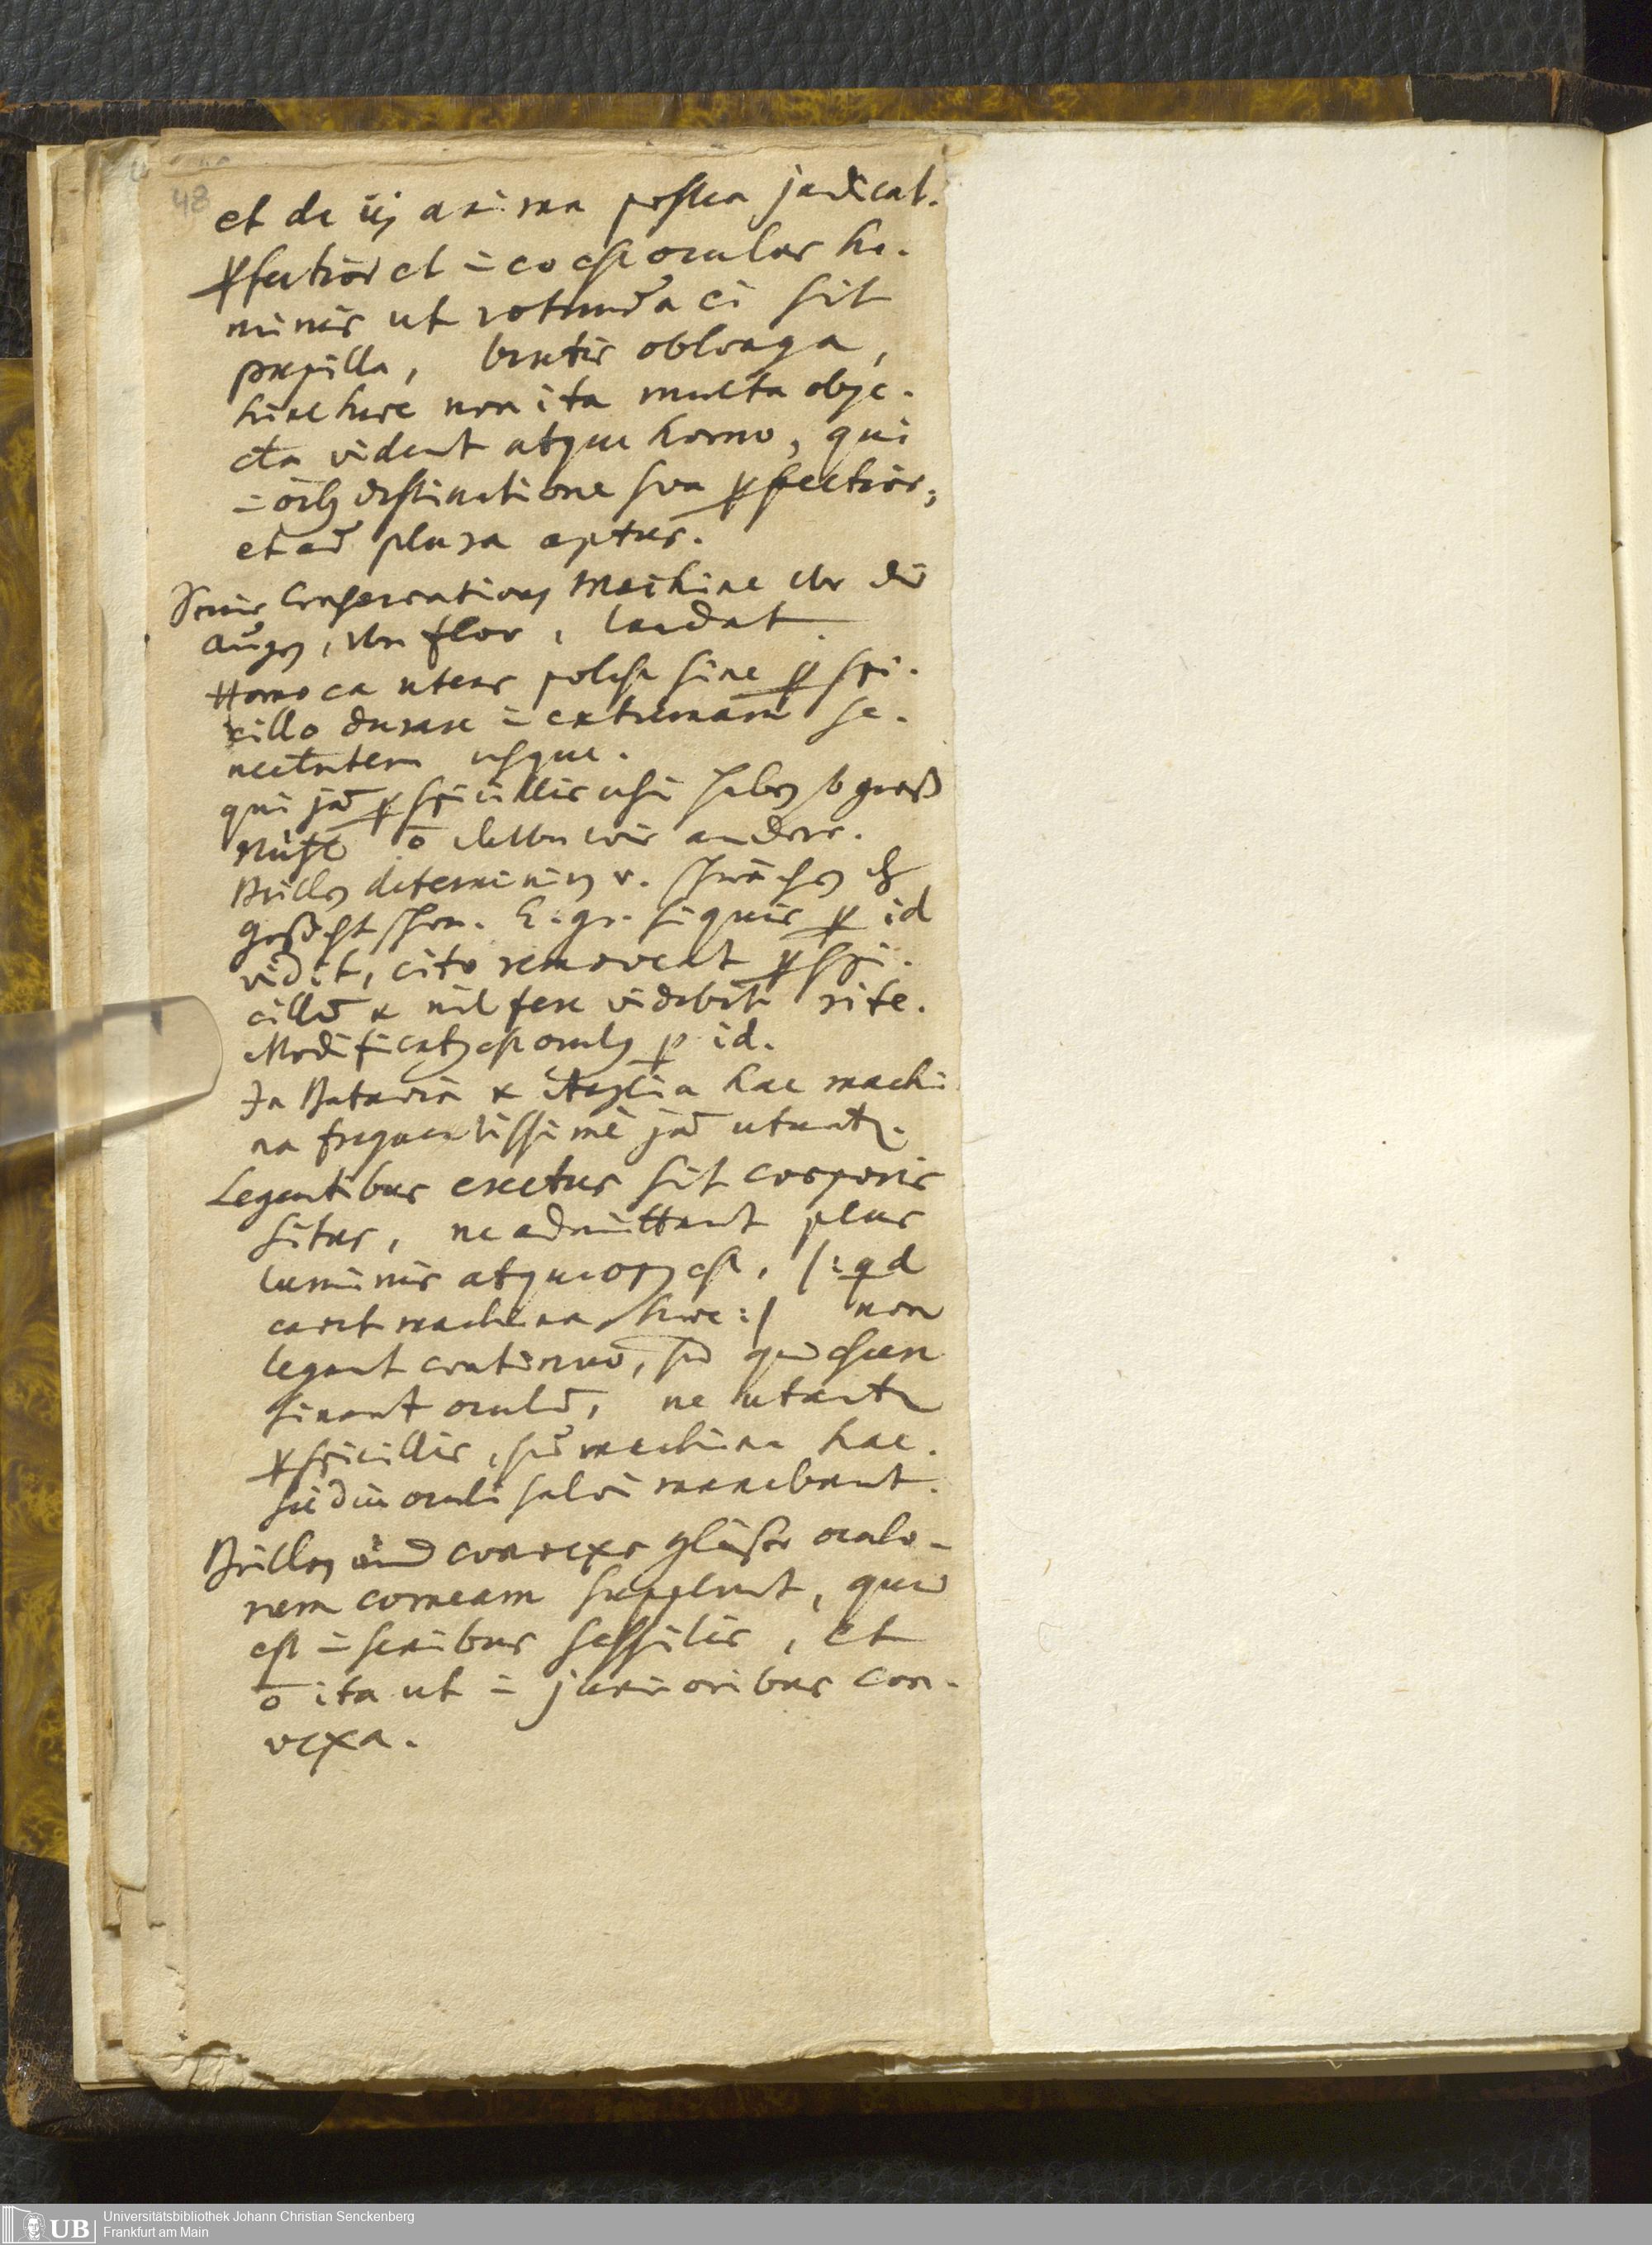 48
et de iis anima postea judicat.
pfectior et in eo est oculus ho-
minis ut rotunda ei sit
pupilla, brutis oblonga,
hinc haec non ita multa obje-
cta vident atque homo, qui
in oib destinatione sua pfectior,
et ad plura aptus.
Seine Conservations Machine vor die
Augen, von flor, laudat.
Homo ea utens potest sine pspi-
cillo durare in extremam se-
nectutem usque.
qui jam pspicillis usi haben so groß
Nutze o davon wie andere.
Brillen determiniren v. schwächen dz
gesicht schon. E. gr. si quis p id
vidit, cito removeat pspi-
cillu & nil fere videbit rite.
Modificatus est oculus p id.
In Batavia & Anglia hac machi-
na frequentissime jam utuntr.
Legentibus erectus sit corporis
situs, ne admittant plus
luminis atque opus est, /: qd
cavet machina haec :/ non
legant continuo, sed quiescere
sinant oculu, ne utantr
pspicillis, sed machina hac.
sic diu oculi salvi manebunt.
Brillen und convexe gläser oculo-
rum corneam supplent, quae
est in senibus sessilis, et
o ita ut in junioribus con-
vexa.
UB
Universitätsbibliothek Johann Christian Senckenberg
Frankfurt am Main